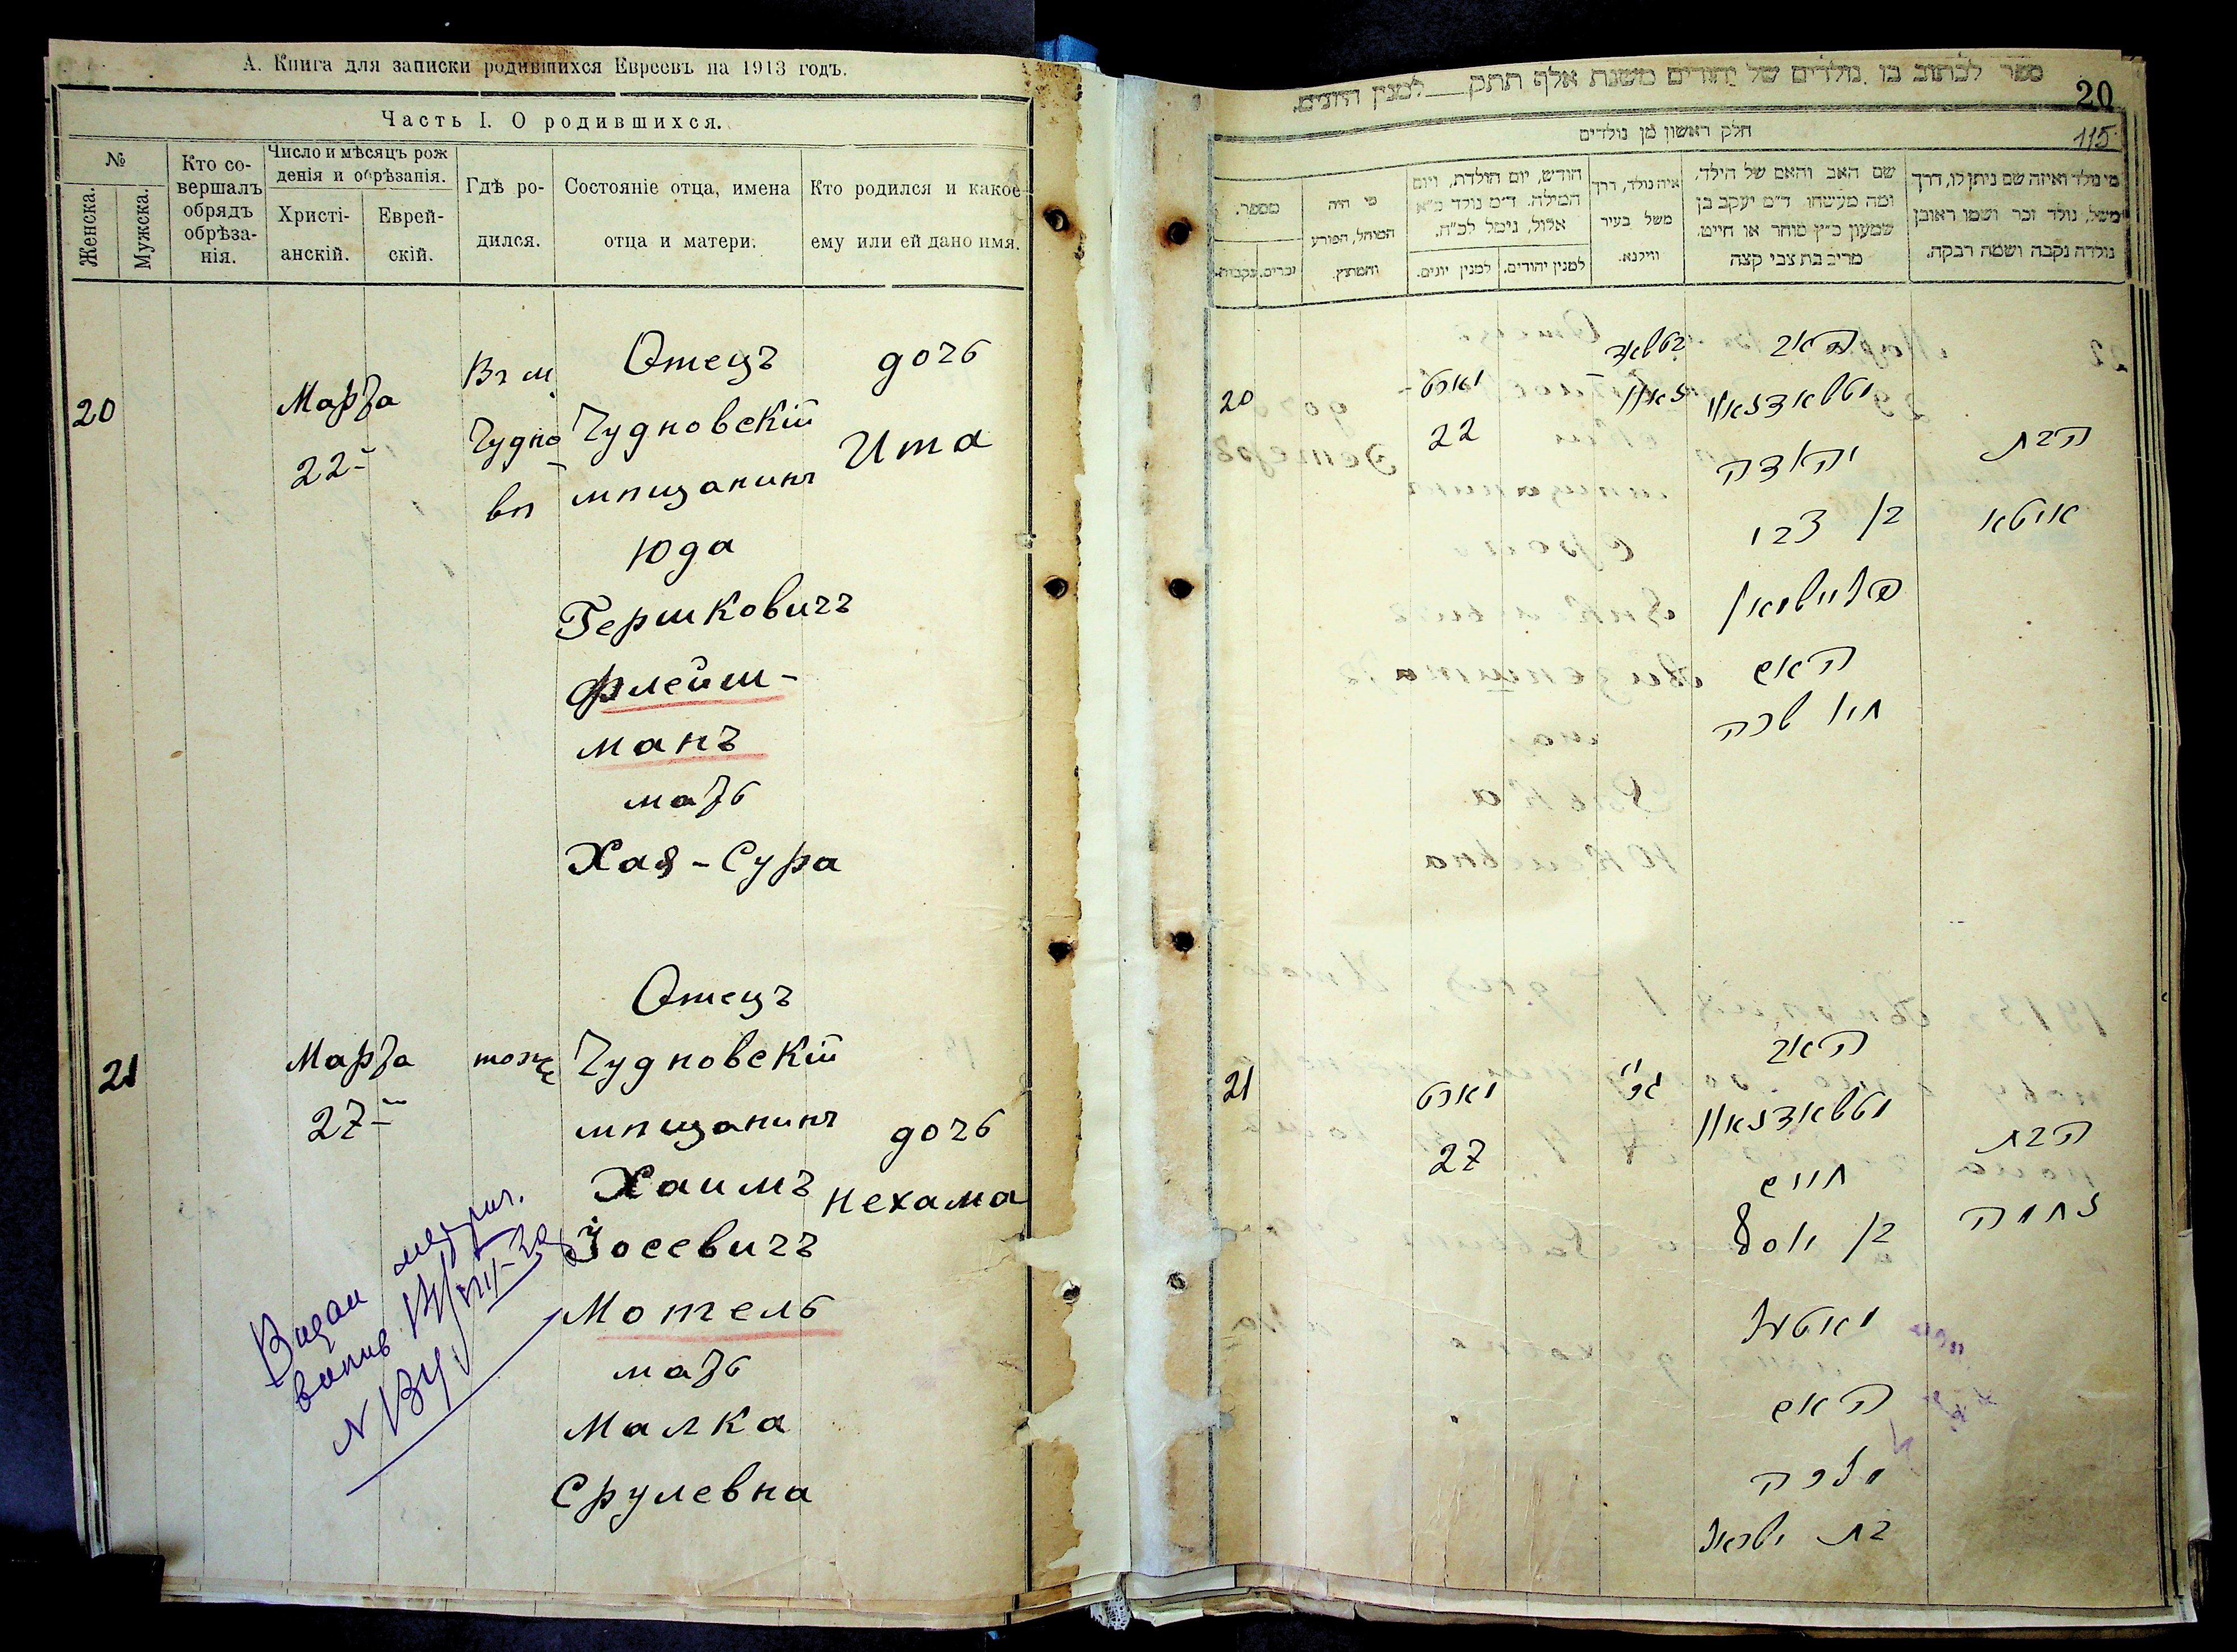 А. Книга для записки родившихся Евреевъ на 1913 годъ.
Часть I. О родившихся.
№
Женска.
Мужска.
Кто со-
вершалъ
обрядъ
обрѣза-
нія.
Число и мѣсяцъ рож
денія и обрѣзанія.
Христі-
анскій.
Еврей-
скій.
Гдѣ ро-
дился.
Состояніе отца, имена
отца и матери.
Кто родился и какое
ему или ей дано имя.
20
Марта
22
Въ м
Чудно
вѣ
Отецъ
Чудновскій
мѣщанинъ
Юда
Гершковичъ
Флейш-
манъ
мать
Хая-Сура
дочь
Ита
21
Марта
27
тоже
Отецъ
Чудновскій
мѣщанинъ
Хаимъ
Іосевичъ
Мотель
мать
Малка
Срулевна
дочь
Нехама
20
115
ספר לכתוב בו נולדים של יהודים משנת אלף תתק — למנין היונים.
חלק ראשון מן נולדים
מי נולד ואיזה שם ניתן לו, דרך
משל, נולד זכר ושמו ראובן
נולדה נקבה ושמה רבקה.
שם האב והאם של הילד,
ומה מעשהו ד״מ יעקב בן
שמעון כ״ץ סוחר או חייט.
מרים בת צבי קצה
איה נולד, דרך
משל בעיר
ווילנא.
חודש, יום הולדת, ויום
המילה. ד״מ נולד כ״א
אלול, נימול לכ״ח.
למנין יהודים.
למנין יונים.
מי היה
המוהל, הפורע
והמוצץ.
מספר.
זכרים.
נקבות.
הבת
איטא
האב
יהודה
בן צבי
פליישמאן
האם
חיה שרה
מארט
22
20
הבת
נחמה
האב
חיים
בן יוסף
מאטעל
האם
מלכה
בת ישראל
מארט
27
21